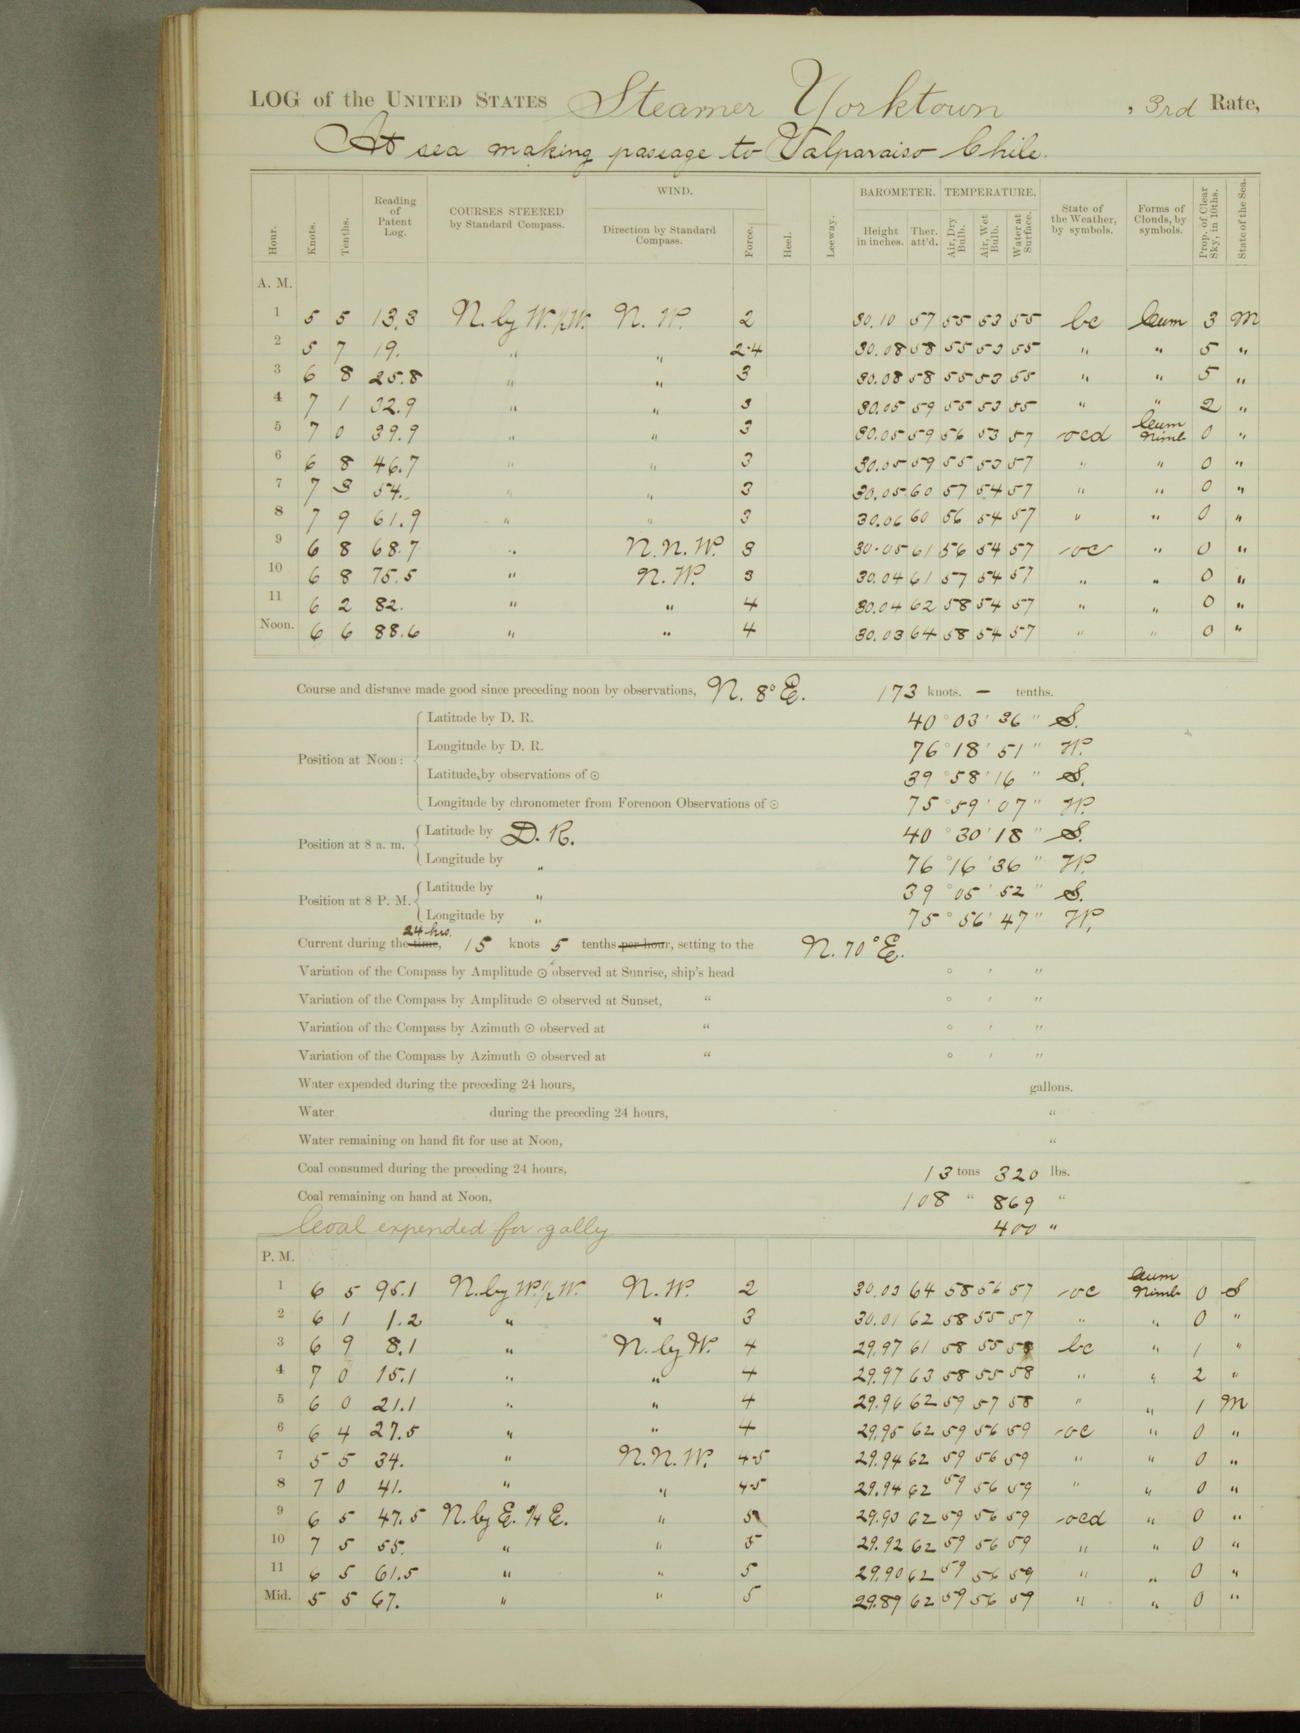 LOG of the UNITED STATES Steamer Yorktown, 3rd Rate,
At sea making passage to Valparaiso Chile.
Hour. Knots. Tenths. Reading of Patent Log. COURSES STEERED by Standard Compass. WIND. Direction by Standard Compass. Force. Heel. Leeway. BAROMETER. Height in inches. Ther. att'd. TEMPERATURE. Air, Dry Bulb. Air, Wet Bulb. Water at Surface. State of the Weather, by symbols. Forms of Clouds, by symbols. Prop. of Clear Sky, in 10ths. State of the Sea.
A. M.
1 5 5 13.3 N. by W. ½ W. N. W. 2 30.10 57 55 53 55 bc Cum 3 M
2 5 7 19. " " 2-4 30.08 58 55 53 55 " " 5 "
3 6 8 25.8 " " 3 30.08 58 55 53 55 " " 5 "
4 7 1 32.9 " " 3 30.05 59 55 53 55 " " 2 "
5 7 0 39.9 " " 3 30.05 59 56 53 57 ocd Cum Nimb 0 "
6 6 8 46.7 " " 3 30.05 59 55 53 57 " " 0 "
7 7 3 54. " " 3 30.05 60 57 54 57 " " 0 "
8 7 9 61.9 " " 3 30.06 60 56 54 57 " " 0 "
9 6 8 68.7 " N. N. W. 3 30.05 61 56 54 57 oc " 0 "
10 6 8 75.5 " N. W. 3 30.04 61 57 54 57 " " 0 "
11 6 2 82. " " 4 30.04 62 58 54 57 " " 0 "
Noon. 6 6 88.6 " " 4 30.03 64 58 54 57 " " 0 "
Course and distance made good since preceding noon by observations, N. 8° E. 173 knots. — tenths.
Position at Noon: Latitude by D. R. 40° 03' 36" S.
Longitude by D. R. 76° 18' 51" W.
Latitude, by observations of ☉ 39° 58' 16" S.
Longitude by chronometer from Forenoon Observations of ☉ 75° 59' 07" W.
Position at 8 a. m. Latitude by D. R. 40° 30' 18" S.
Longitude by " 76° 16' 36" W.
Position at 8 P. M. Latitude by " 39° 05' 52" S.
Longitude by " 75° 56' 47" W.
Current during the time, 24 hrs. 15 knots 5 tenths per hour, setting to the N. 70° E.
Variation of the Compass by Amplitude ☉ observed at Sunrise, ship's head ° ' "
Variation of the Compass by Amplitude ☉ observed at Sunset, " ° ' "
Variation of the Compass by Azimuth ☉ observed at " ° ' "
Variation of the Compass by Azimuth ☉ observed at " ° ' "
Water expended during the preceding 24 hours, gallons.
Water during the preceding 24 hours, "
Water remaining on hand fit for use at Noon, "
Coal consumed during the preceding 24 hours, 13 tons 320 lbs.
Coal remaining on hand at Noon, 108 " 869 "
Coal expended for gally 400 "
P. M.
1 6 5 95.1 N. by W. ½ W. N. W. 2 30.03 64 58 56 57 oc Cum Nimb 0 S
2 6 1 1.2 " " 3 30.01 62 58 55 57 " " 0 "
3 6 9 8.1 " N. by W. 4 29.97 61 58 55 58 bc " 1 "
4 7 0 15.1 " " 4 29.97 63 58 55 58 " " 2 "
5 6 0 21.1 " " 4 29.96 62 59 57 58 " " 1 M
6 6 4 27.5 " " 4 29.95 62 59 56 59 oc " 0 "
7 5 5 34. " N. N. W. 4-5 29.94 62 59 56 59 " " 0 "
8 7 0 41. " " 4-5 29.94 62 59 56 59 " " 0 "
9 6 5 47.5 N. by E. ¾ E. " 5 29.93 62 59 56 59 ocd " 0 "
10 7 5 55. " " 5 29.92 62 59 56 59 " " 0 "
11 6 5 61.5 " " 5 29.90 62 59 56 59 " " 0 "
Mid. 5 5 67. " " 5 29.89 62 59 56 59 " " 0 "